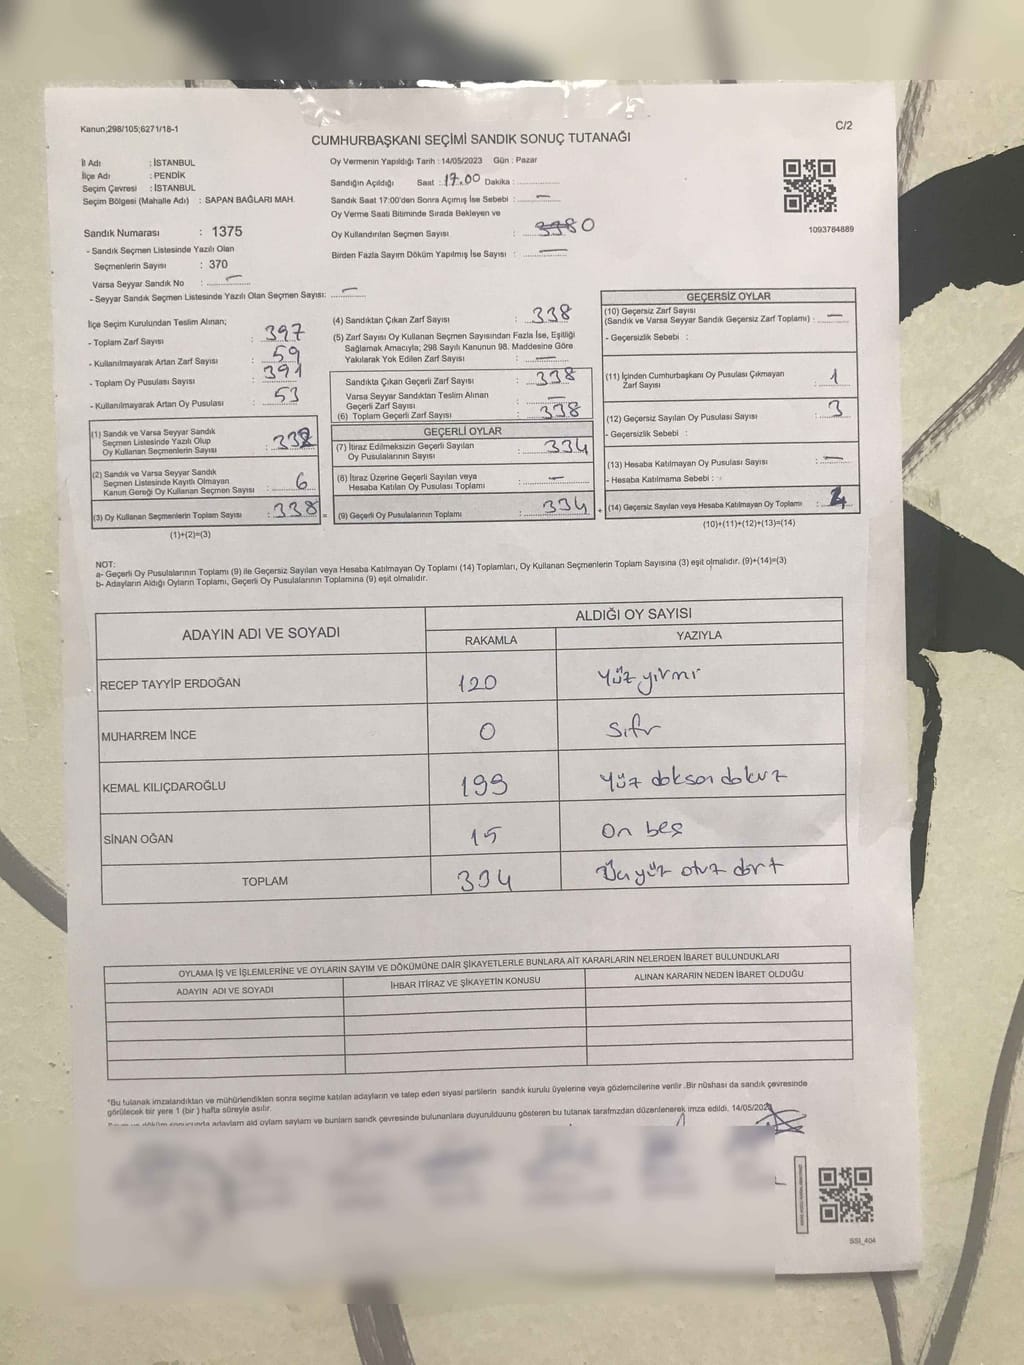 Kanun;298/105;6271/18-1
C/2
CUMHURBAŞKANI SEÇİMİ SANDIK SONUÇ TUTANAĞI
İl Adı : İSTANBUL
İlçe Adı : PENDİK
Seçim Çevresi : İSTANBUL
Seçim Bölgesi (Mahalle Adı) : SAPAN BAĞLARI MAH.
Sandık Numarası : 1375
- Sandık Seçmen Listesinde Yazılı Olan
Seçmenlerin Sayısı : 370
Varsa Seyyar Sandık No : –
- Seyyar Sandık Seçmen Listesinde Yazılı Olan Seçmen Sayısı: –
Oy Vermenin Yapıldığı Tarih : 14/05/2023 Gün : Pazar
Sandığın Açıldığı Saat : 17.00 Dakika :
Sandık Saat 17:00'den Sonra Açımış İse Sebebi : –
Oy Verme Saati Bitiminde Sırada Bekleyen ve
Oy Kullandırılan Seçmen Sayısı : 0
Birden Fazla Sayım Döküm Yapılmış İse Sayısı : –
1093784889
İlçe Seçim Kurulundan Teslim Alınan;
- Toplam Zarf Sayısı : 397
- Kullanılmayarak Artan Zarf Sayısı : 59
- Toplam Oy Pusulası Sayısı : 391
- Kullanılmayarak Artan Oy Pusulası : 53
(1) Sandık ve Varsa Seyyar Sandık
Seçmen Listesinde Yazılı Olup
Oy Kullanan Seçmenlerin Sayısı :
(2) Sandık ve Varsa Seyyar Sandık
Seçmen Listesinde Kayıtlı Olmayan
Kanun Gereği Oy Kullanan Seçmen Sayısı : 6
(3) Oy Kullanan Seçmenlerin Toplam Sayısı : 338
(1)+(2)=(3)
(4) Sandıktan Çıkan Zarf Sayısı : 338
(5) Zarf Sayısı Oy Kullanan Seçmen Sayısından Fazla İse, Eşitliği
Sağlamak Amacıyla; 298 Sayılı Kanunun 98. Maddesine Göre
Yakılarak Yok Edilen Zarf Sayısı : –
Sandıkta Çıkan Geçerli Zarf Sayısı : 338
Varsa Seyyar Sandıktan Teslim Alınan
Geçerli Zarf Sayısı : –
(6) Toplam Geçerli Zarf Sayısı : 338
GEÇERLİ OYLAR
(7) İtiraz Edilmeksizin Geçerli Sayılan
Oy Pusulalarının Sayısı : 334
(8) İtiraz Üzerine Geçerli Sayılan veya
Hesaba Katılan Oy Pusulası Toplamı : –
(9) Geçerli Oy Pusulalarının Toplamı : 334
GEÇERSİZ OYLAR
(10) Geçersiz Zarf Sayısı
(Sandık ve Varsa Seyyar Sandık Geçersiz Zarf Toplamı) : –
- Geçersizlik Sebebi :
(11) İçinden Cumhurbaşkanı Oy Pusulası Çıkmayan
Zarf Sayısı : 1
(12) Geçersiz Sayılan Oy Pusulası Sayısı : 3
- Geçersizlik Sebebi :
(13) Hesaba Katılmayan Oy Pusulası Sayısı : –
- Hesaba Katılmama Sebebi :
(14) Geçersiz Sayılan veya Hesaba Katılmayan Oy Toplamı : 4
(10)+(11)+(12)+(13)=(14)
NOT:
a- Geçerli Oy Pusulalarının Toplamı (9) ile Geçersiz Sayılan veya Hesaba Katılmayan Oy Toplamı (14) Toplamları, Oy Kullanan Seçmenlerin Toplam Sayısına (3) eşit olmalıdır. (9)+(14)=(3)
b- Adayların Aldığı Oyların Toplamı, Geçerli Oy Pusulalarının Toplamına (9) eşit olmalıdır.
ADAYIN ADI VE SOYADI
ALDIĞI OY SAYISI
RAKAMLA YAZIYLA
RECEP TAYYİP ERDOĞAN 120 Yüz yirmi
MUHARREM İNCE 0 Sıfır
KEMAL KILIÇDAROĞLU 199 Yüz doksan dokuz
SİNAN OĞAN 15 On beş
TOPLAM 334 Üç yüz otuz dört
OYLAMA İŞ VE İŞLEMLERİNE VE OYLARIN SAYIM VE DÖKÜMÜNE DAİR ŞİKAYETLERLE BUNLARA AİT KARARLARIN NELERDEN İBARET BULUNDUKLARI
ADAYIN ADI VE SOYADI İHBAR İTİRAZ VE ŞİKAYETİN KONUSU ALINAN KARARIN NEDEN İBARET OLDUĞU
*Bu tutanak imzalandıktan ve mühürlendikten sonra seçime katılan adayların ve talep eden siyasi partilerin sandık kurulu üyelerine veya gözlemcilerine verilir .Bir nüshası da sandık çevresinde
görülecek bir yere 1 (bir ) hafta süreyle asılır.
adayların ald oyların sayların ve bunların sandk çevresinde bulunanlara duyurulduunu gösteren bu tutanak tarafmzdan düzenlenerek imza edildi. 14/05/2023
SSI_404